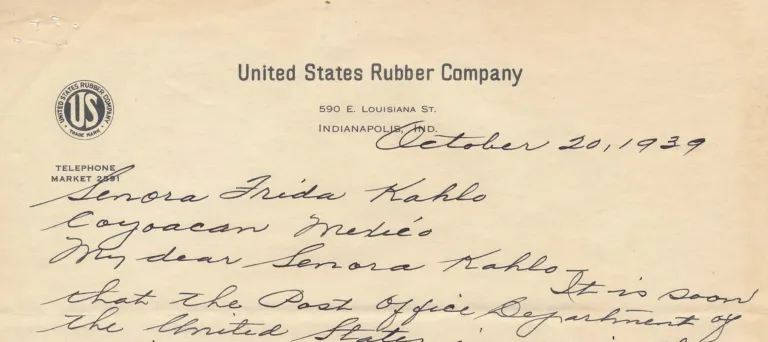 United States Rubber Company
590 E. LOUISIANA ST.
INDIANAPOLIS, IND.
UNITED STATES RUBBER COMPANY
US
TRADE MARK
October 20, 1939
TELEPHONE
MARKET 2591
Senora Frida Kahlo
Coyoacan Mexico
My dear Senora Kahlo – It is soon
that the Post Office Department of
the United States